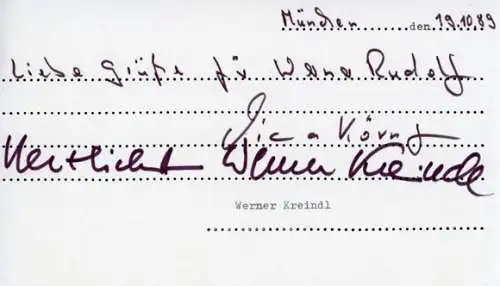 München den 19.10.89
Liebe Grüße für Werner Rudolf
Diana Körner
Herzlichst Werner Kreindl
Werner Kreindl